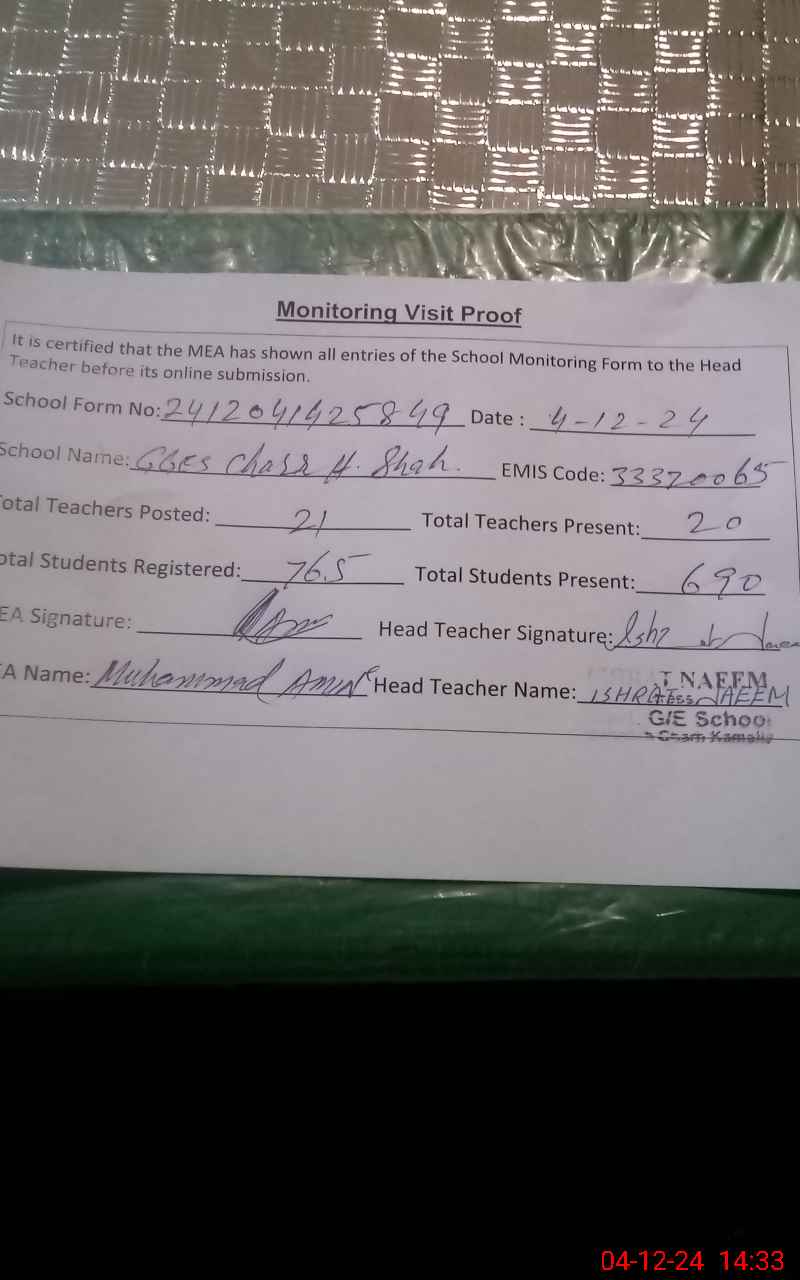 Monitoring Visit Proof
It is certified that the MEA has shown all entries of the School Monitoring Form to the Head
Teacher before its online submission.
School Form No: 2412041425849 Date : 4-12-24
School Name: GGES Chah H. Shah. EMIS Code: 33320065
otal Teachers Posted: 21 Total Teachers Present: 20
otal Students Registered: 765 Total Students Present: 690
EA Signature: Head Teacher Signature:
A Name: Muhammad Amin Head Teacher Name: ISHRAT NAEEM
T NAEEM
G/E School
Kamalia
04-12-24 14:33